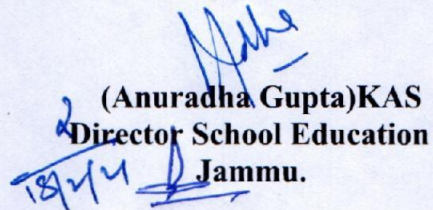 (Anuradha Gupta)KAS
Director School Education
Jammu.
18/2/21